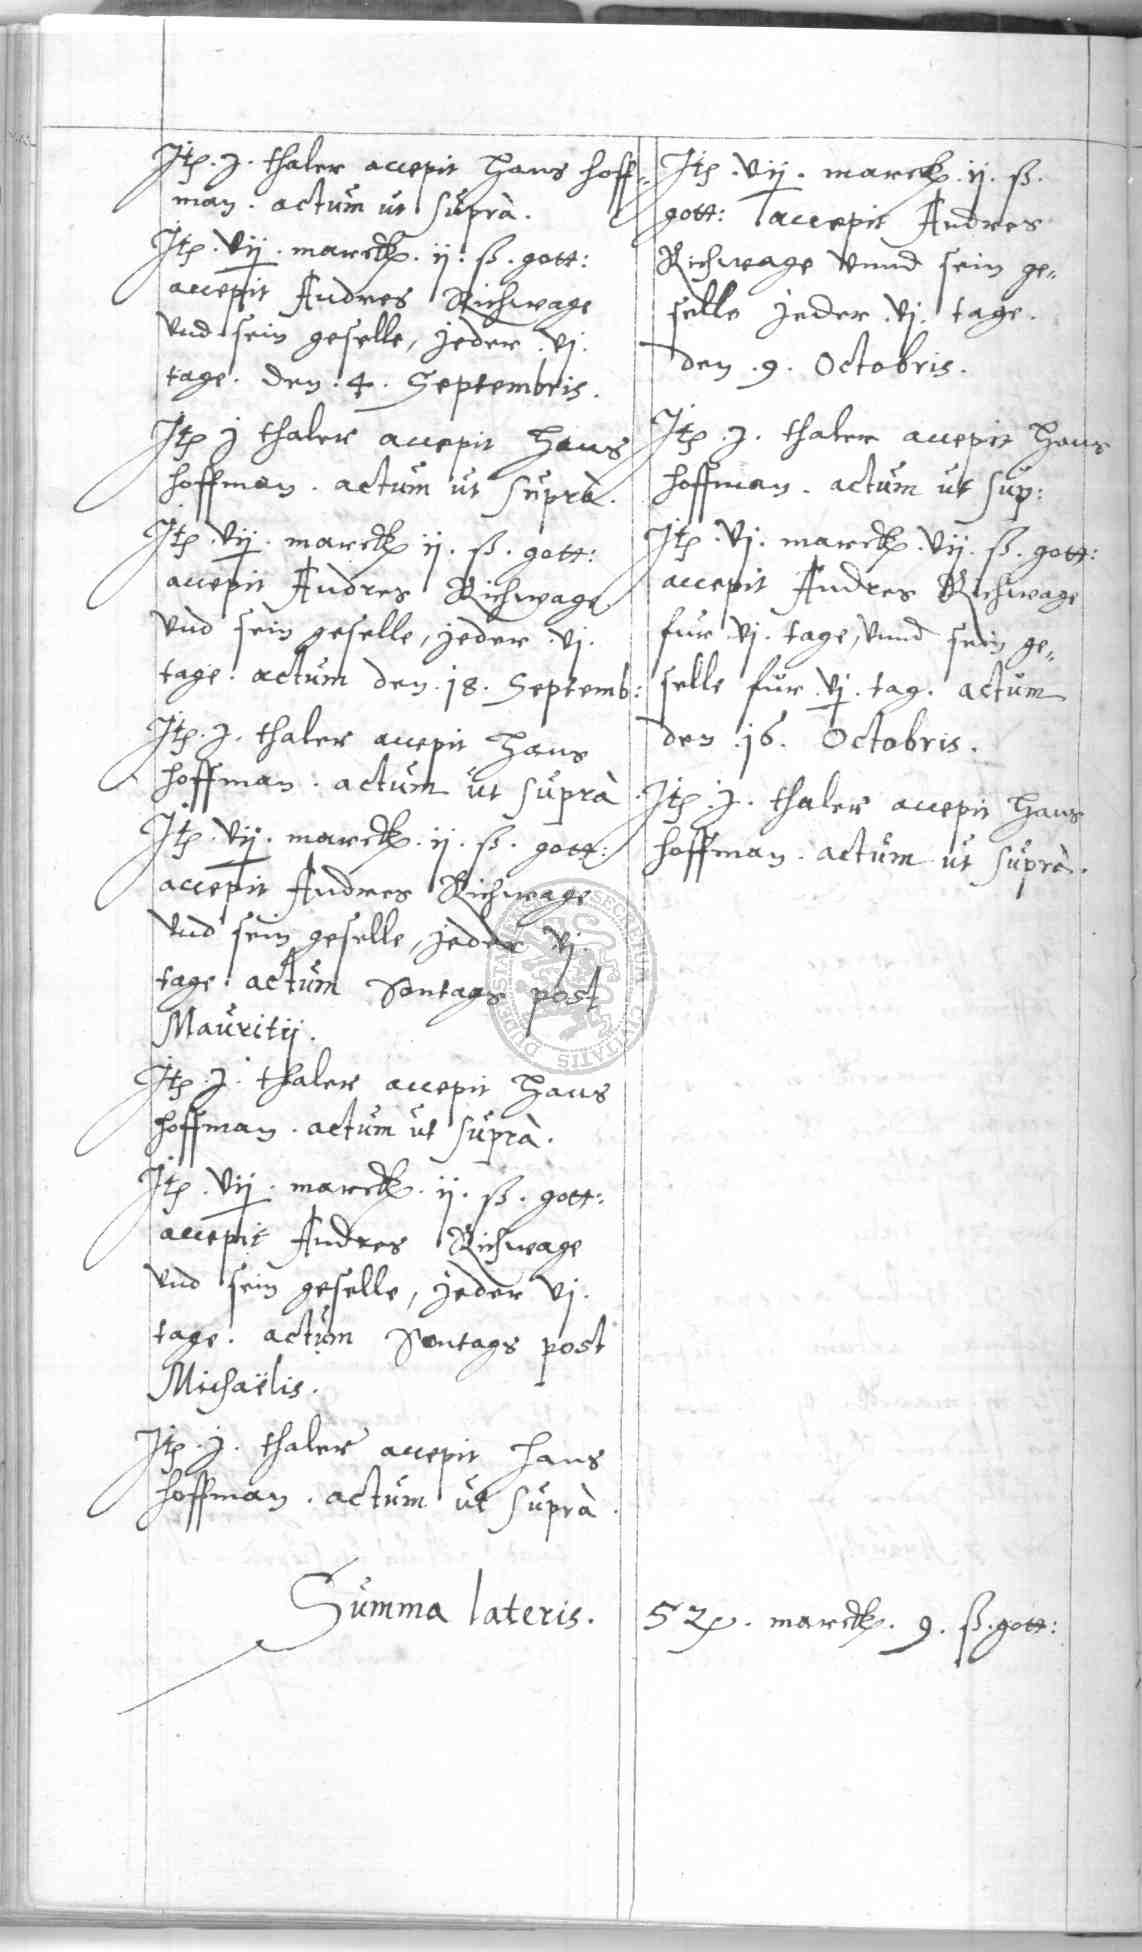 Itp. j. thaler accepit Hans Hoff-
man. actum ut suprà.
Itp. vij. marck. ij. ß. gott:
accepit Andres Richwage
vnd sein geselle, jeder. vj.
tage. den. 4. Septembris.
Itp j thaler accepit Hans
Hoffman. actum ut suprà.
Itp. vij. marck ij. ß. gott:
accepit Andres Richwage
vnd sein geselle, jeder vj.
tage. actum den. 18. Septemb:
Itp. j. thaler accepit Hans
Hoffman. actum ut suprà.
Itp. vij. marck. ij. ß. gott:
accepit Andres Richwage
vnd sein geselle, jeder vj.
tage. actum Sontags post
Mauritij.
Itp. j. thaler accepit Hans
Hoffman. actum ut suprà.
Itp. vij. marck. ij. ß. gott:
accepit Andres Richwage
vnd sein geselle, jeder vj.
tage. actum Sontags post
Michaëlis.
Itp. j. thaler accepit Hans
Hoffman. actum ut suprà.
Itp. vij. marck. ij. ß.
gott: accepit Andres
Richwage vnnd sein ge-
selle jeder. vj. tage.
den. 9. Octobris.
Itp. j. thaler accepit Hans
Hoffman. actum ut sup:
Itp. vj. marck. vij. ß. gott:
accepit Andres Richwage
fur vj. tage, vnnd sein ge-
selle fur. vj. tag. actum
den. 16. Octobris.
Itp. j. thaler accepit Hans
Hoffman. actum ut suprà.
Summa lateris. marck. 9. ß. gott:
SECRETUM CIVITATIS